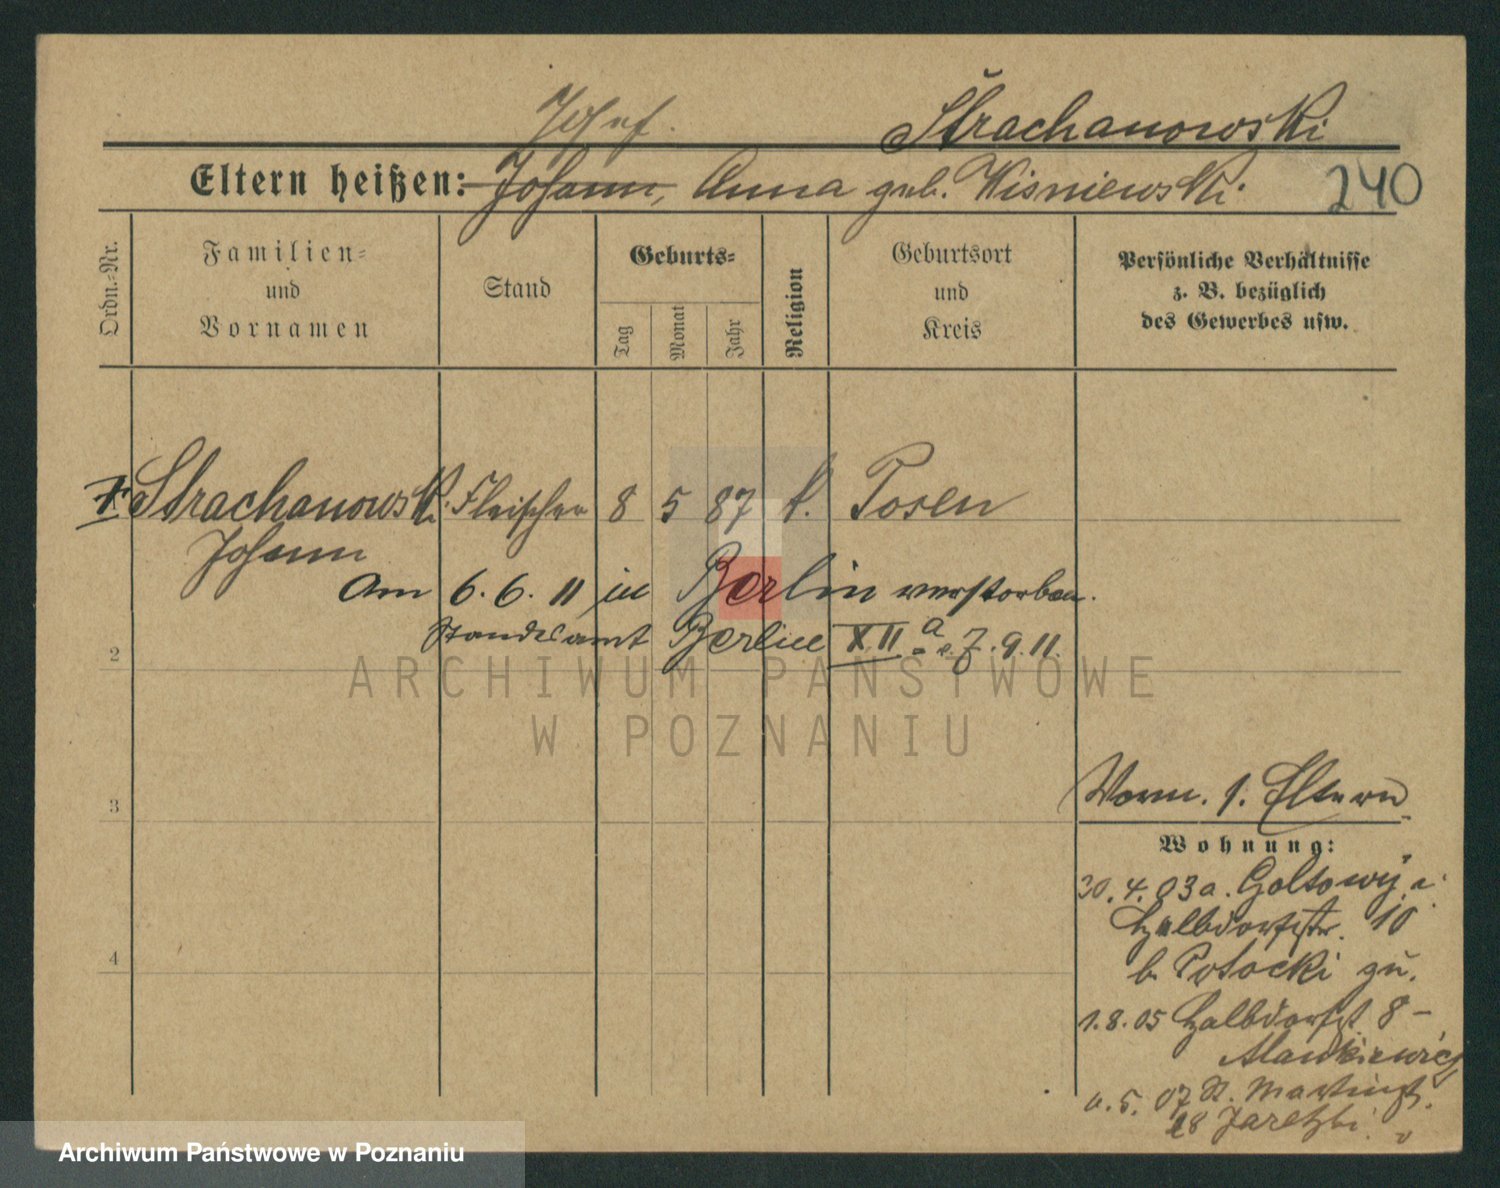 Josef. Strachanowski
Eltern heißen: Johann, Anna geb. Wisniewski.
240
Ordn.-Nr.
Familien-
und
Vornamen
Stand
Geburts-
Tag
Monat
Jahr
Religion
Geburtsort
und
Kreis
Persönliche Verhältnisse
z. B. bezüglich
des Gewerbes usw.
Strachanowski Fleischer 8 5 87 k. Posen
Johann
Am 6.6.11 in Berlin verstorben.
Standesamt Berlin XII a 7.9.11.
2
ARCHIWUM PAŃSTWOWE
W POZNANIU
3
Eltern
Wohnung:
30.4.03 a.
Halbdorfstr. 10
b. Potocki zu.
1.8.05 Halbdorfst 8 –
4
5. 07 St. Martinst.
28
Archiwum Państwowe w Poznaniu